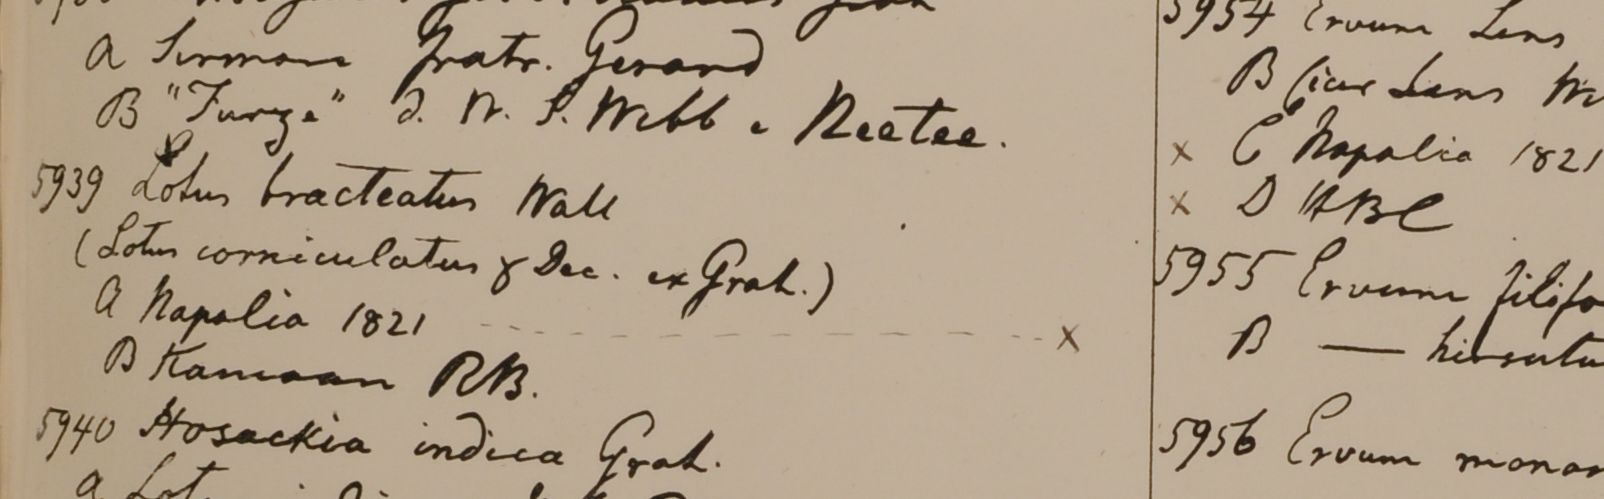 A Sirmore fratr. Gerard
B "Furze" d. W. S. Webb e Neetee.
5939 Lotus bracteatus Wall
(Lotus corniculatus γ Dec. ex Grah.)
A Napalia 1821 - - - - - - - - - - - - x
B Kamaon RB.
5940 Hosackia indica Grah.
a Lot
5954 Ervum Lens
B Cicer Lens W
x C Napalia 1821
x D HBC
5955 Ervum filifo
B — hirsutu
5956 Ervum monan